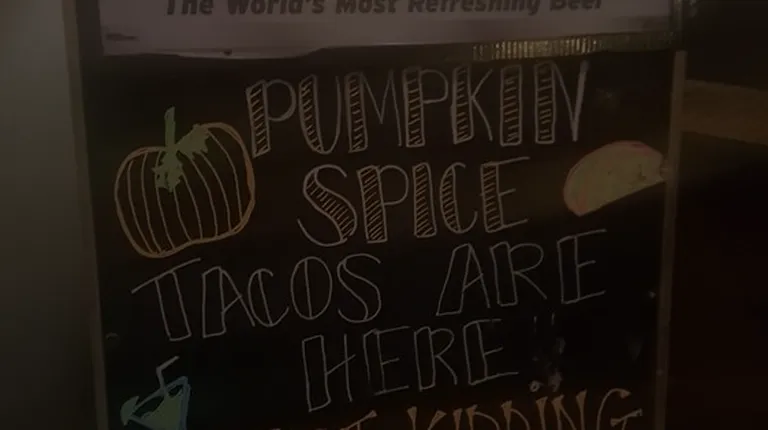 The World's Most Refreshing Beer
PUMPKIN
SPICE
TACOS ARE
HERE!!
KIDDING